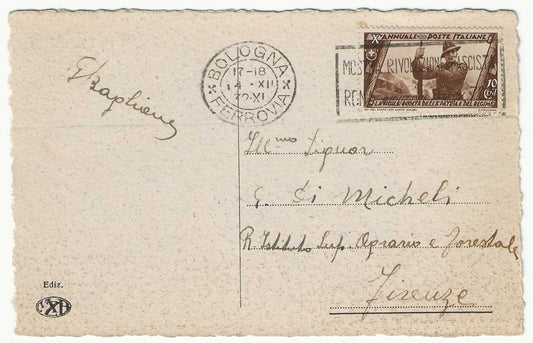 X ANNUALE POSTE ITALIANE X
10
Cent
LA VIGILE SCOLTA DELLA PATRIA E DEL REGIME
MOSTRA RIVOLUZIONE FASCISTA
BOLOGNA
17-18
14 · XII
32·XI
FERROVIA
Ill.mo Signor
G. Di Micheli
R. Istituto Sup. Agrario e Forestale
Firenze
Ediz.